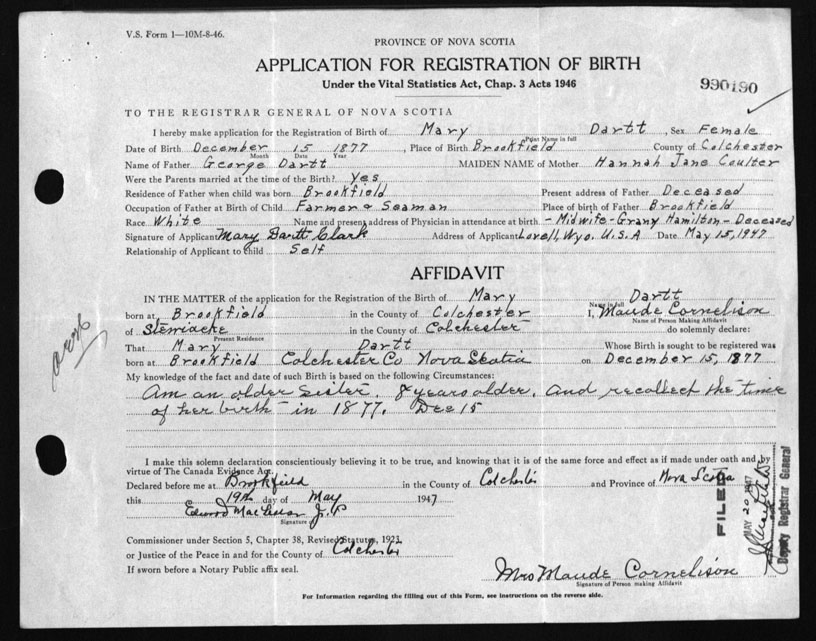 V.S. Form 1—10M-8-46.
PROVINCE OF NOVA SCOTIA
APPLICATION FOR REGISTRATION OF BIRTH
Under the Vital Statistics Act, Chap. 3 Acts 1946
990190
TO THE REGISTRAR GENERAL OF NOVA SCOTIA
I hereby make application for the Registration of Birth of Mary Dartt, Sex Female
Print Name in full
Date of Birth December 15 1877, Place of Birth Brookfield County of Colchester
Month Date Year
Name of Father George Dartt MAIDEN NAME of Mother Hannah Jane Coulter
Were the Parents married at the time of the Birth? Yes
Residence of Father when child was born Brookfield Present address of Father Deceased
Occupation of Father at Birth of Child Farmer & Seaman Place of birth of Father Brookfield
Race White Name and present address of Physician in attendance at birth - Midwife - Grany Hamilton - Deceased
Signature of Applicant Mary Dartt Clark Address of Applicant Lovell, Wyo. U.S.A Date May 15, 1947
Relationship of Applicant to child Self
AFFIDAVIT
IN THE MATTER of the application for the Registration of the Birth of Mary Dartt
Name in full
born at Brookfield in the County of Colchester I, Maude Cornelison
Name of Person Making Affidavit
of Stewiacke in the County of Colchester do solemnly declare:
Present Residence
That Mary Dartt Whose Birth is sought to be registered was
born at Brookfield Colchester Co Nova Scotia on December 15, 1877
My knowledge of the fact and date of such Birth is based on the following Circumstances:
Am an older sister, 8 years older, and recollect the time
of her birth in 1877. Dec 15
I make this solemn declaration conscientiously believing it to be true, and knowing that it is of the same force and effect as if made under oath and by
virtue of The Canada Evidence Act.
Declared before me at Brookfield in the County of Colchester and Province of Nova Scotia
this 19th day of May 1947
Edward J.P
Signature
Commissioner under Section 5, Chapter 38, Revised Statutes, 1923
or Justice of the Peace in and for the County of Colchester
If sworn before a Notary Public affix seal.
Mrs Maude Cornelison
Signature of Person making Affidavit
For Information regarding the filling out of this Form, see instructions on the reverse side.
FILED
MAY 20 1947
Deputy Registrar General